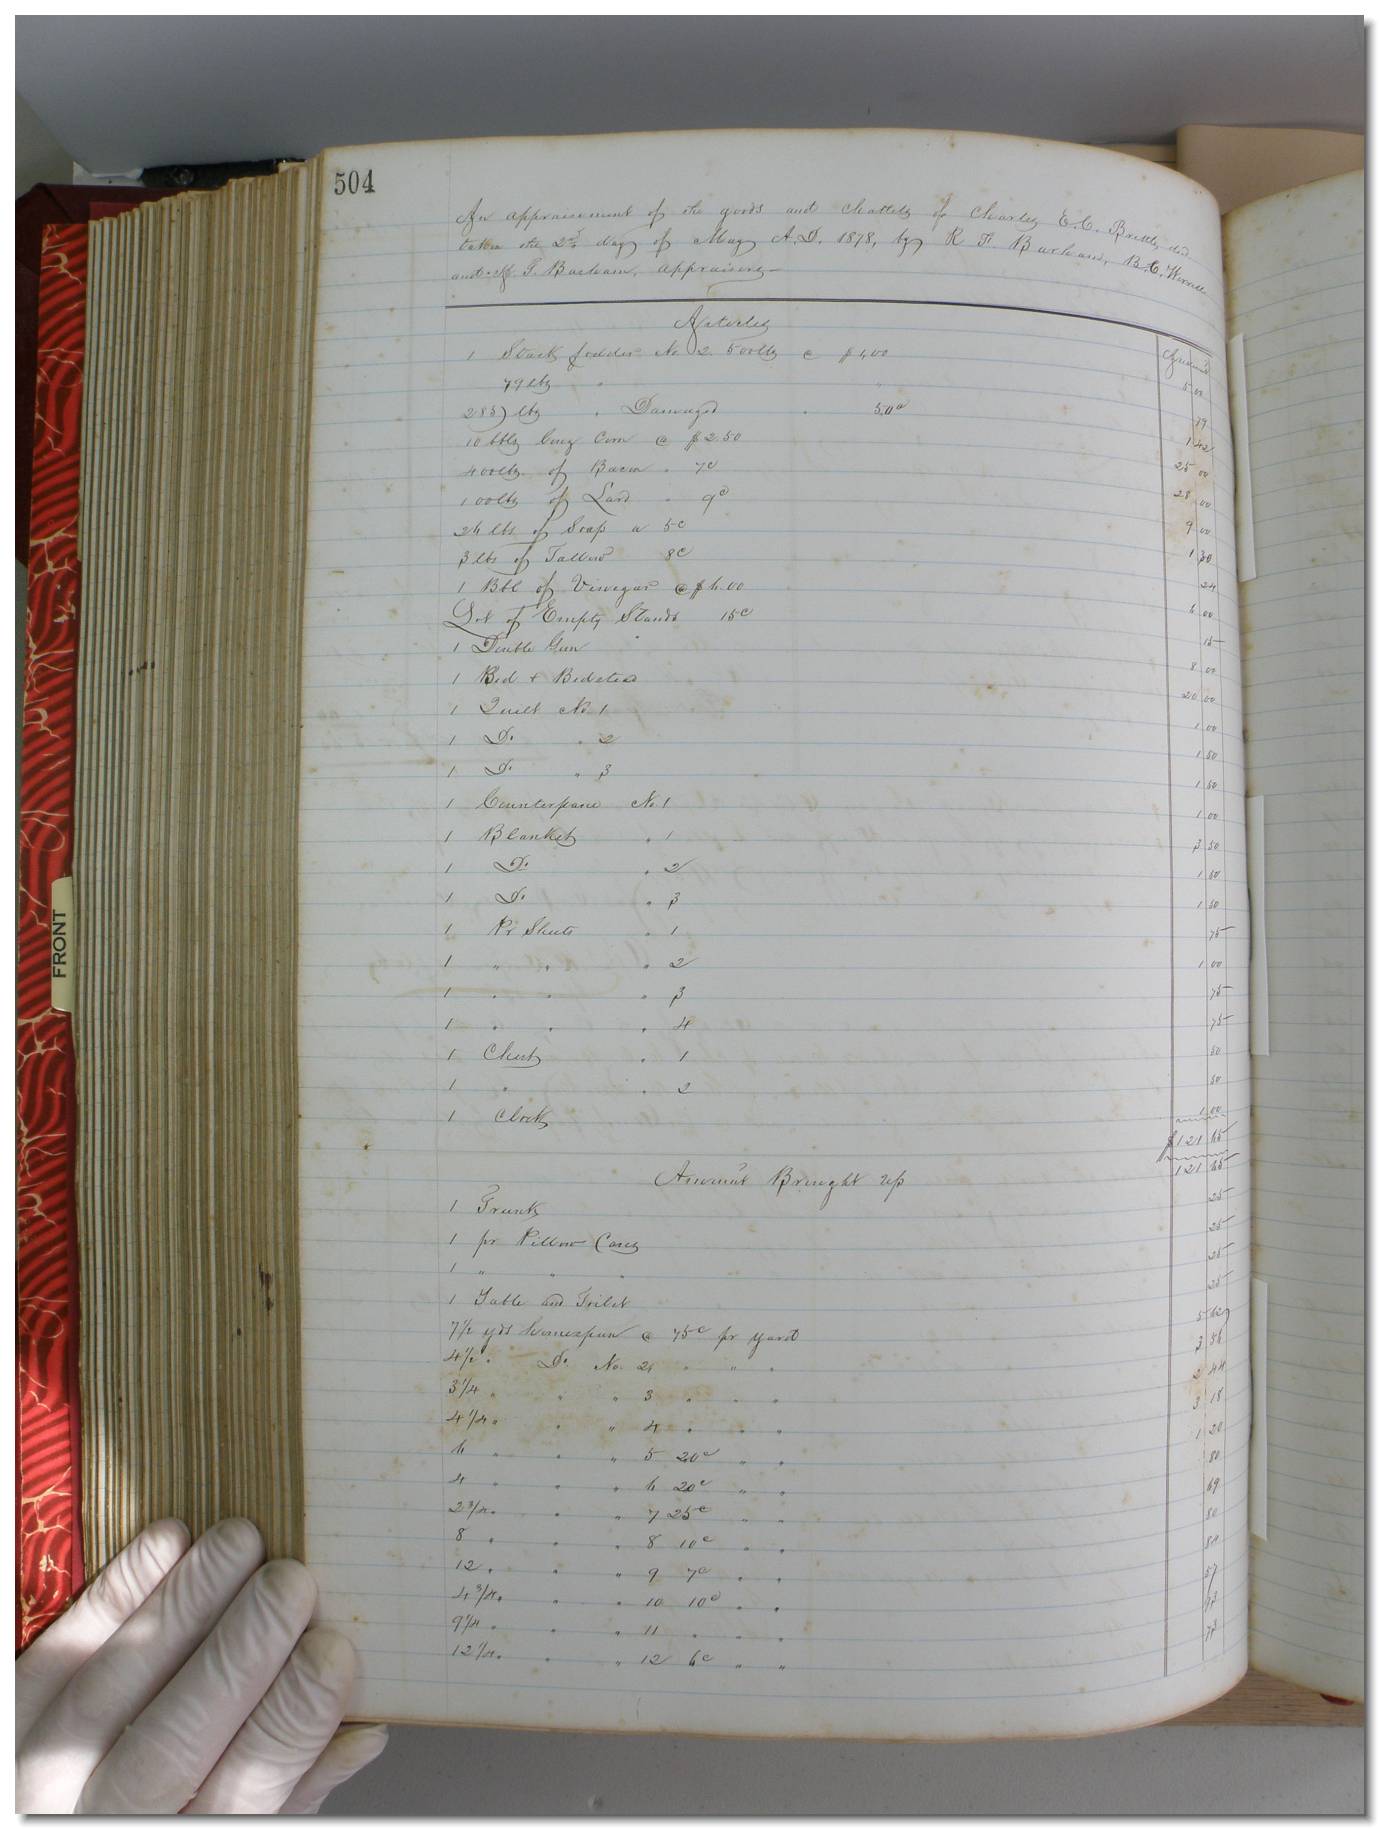 504
An appraisement of the goods and chattels of Charles E.C. Brittle, decd
taken the 2nd day of May A.D. 1878, by R F. Barham, B.C.
and F. Barham, appraisers
Articles
Amount
1 Stack fodder No 2. 500lbs @ $1,00 5 00
79 lbs " " 79
285 lbs " Damaged " 50c 1 42
10 bbls Long Corn @ $2.50 25 00
400lbs of Bacon " 7c 28 00
100lbs of Lard " 9c 9 00
26 lbs of Soap a 5c 1 30
3 lbs of Tallow 8c 24
1 Bbl of Vinegar @ $6.00 6 00
Lot of Empty Stands 15c 15
1 Double Gun 8 00
1 Bed + Bedstead 20 00
1 Quilt No. 1 1 00
1 Do. " 2 1 50
1 Do. " 3 1 50
1 Counterpane No 1 1 00
1 Blanket " 1 3 50
1 Do. " 2 1 50
1 Do. " 3 1 50
1 Pr Sheets " 1 75
1 " " " 2 1 00
1 " " " 3 75
1 " " " 4 75
1 Chest " 1 50
1 " " 2 50
1 Clock 1 00
$121 65
Amount Brought up 121 65
1 Trunk 25
1 pr Pillow Cases 25
1 " " " 25
1 Table and Toilet 25
7 1/2 yds homespun @ 75c pr yard 5 62
4 1/2 " Do. No. 2 " " " 3 38
3 1/4 " " " 3 " " " 2 44
4 1/4 " " " 4 " " " 3 18
6 " " " 5 20c " " 1 20
4 " " " 6 20c " " 80
2 3/4 " " " 7 25c " " 69
8 " " " 8 10c " " 80
12 " " " 9 7c " " 84
4 3/4 " " " 10 10c " "
9 1/4 " " " 11 " " "
12 1/4 " " " 12 6c " "
FRONT